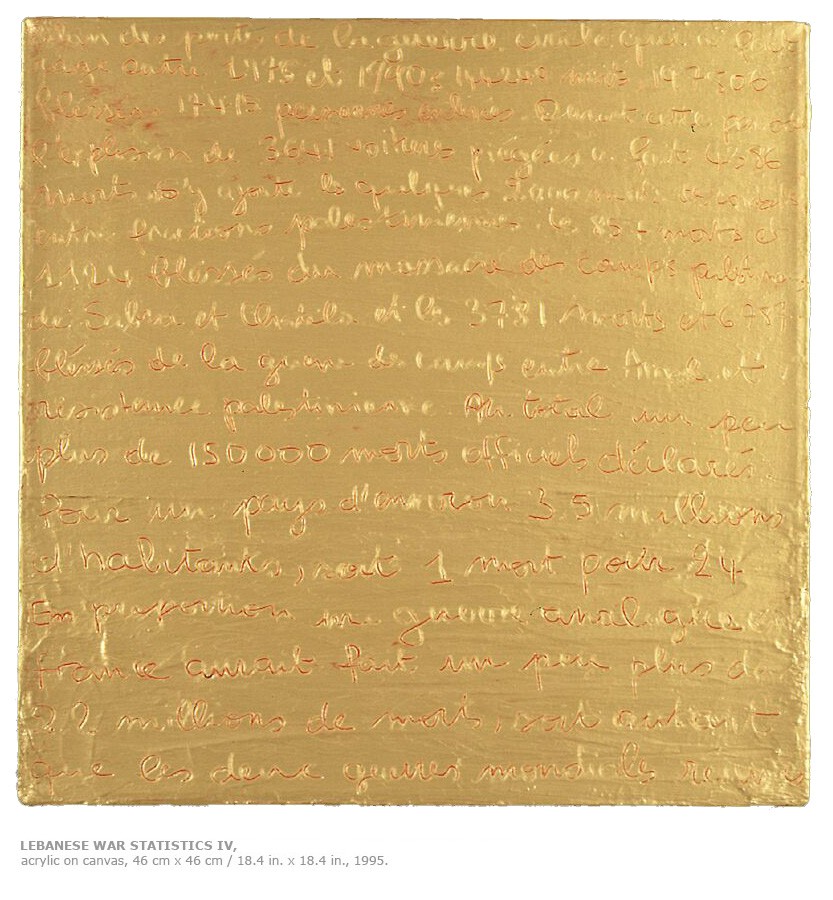 des pertes de la guerre civile qui a
entre 1975 et 1990: 144240 morts, 197506
blessés, 17415 personnes. Durant cette
l'explosion de 3641 voitures piégées a fait 4386
morts. S'y ajoute
entre palestiniennes. le 857 morts
blessés du massacre des camps
de Sabra et Chatila et les 3781 morts et
blessés de la guerre de camps entre Amal et
résistance palestinienne. Au total un peu
plus de 150000 morts officiels déclarés.
Pour un pays d'environ 3.5 millions
d'habitants, soit 1 mort pour 24
En proportion une guerre analogue
France aurait fait un peu plus de
2.2 millions de morts, soit autant
que les deux guerres mondiales
LEBANESE WAR STATISTICS IV,
acrylic on canvas, 46 cm x 46 cm / 18.4 in. x 18.4 in., 1995.